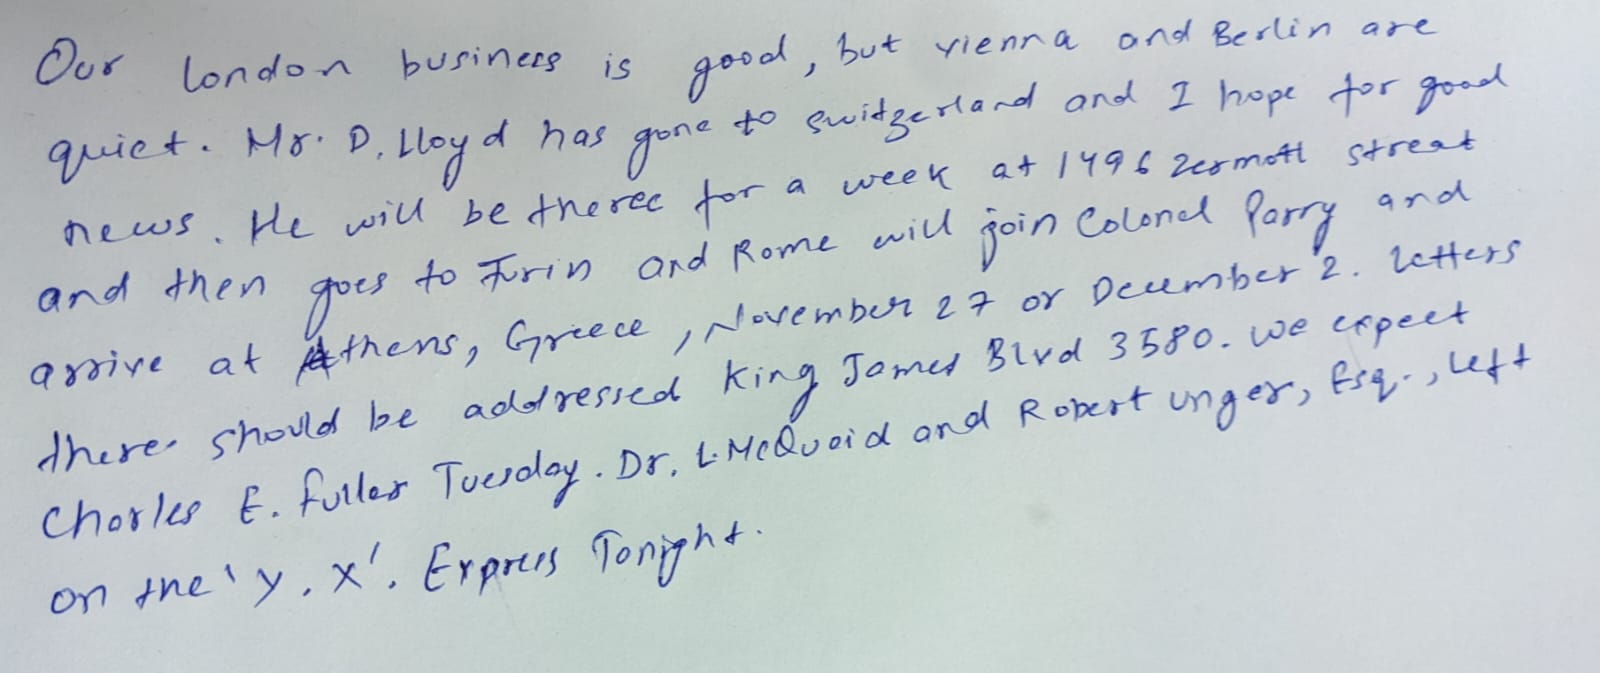 Our london business is good, but vienna and Berlin are
quiet. Mr. D. Lloyd has gone to switzerland and I hope for good
news. He will be theree for a week at 1496 zermott streat
and then goes to Turin and Rome will join Colonel Parry and
arrive at Athens, Greece, November 27 or December 2. Letters
there should be addressed King James Blvd 3580. we expect
Charles E. fuller Tuesday. Dr. L. McQuaid and Robert unger, Esq., left
on the 'y. x'. Express Tonight.